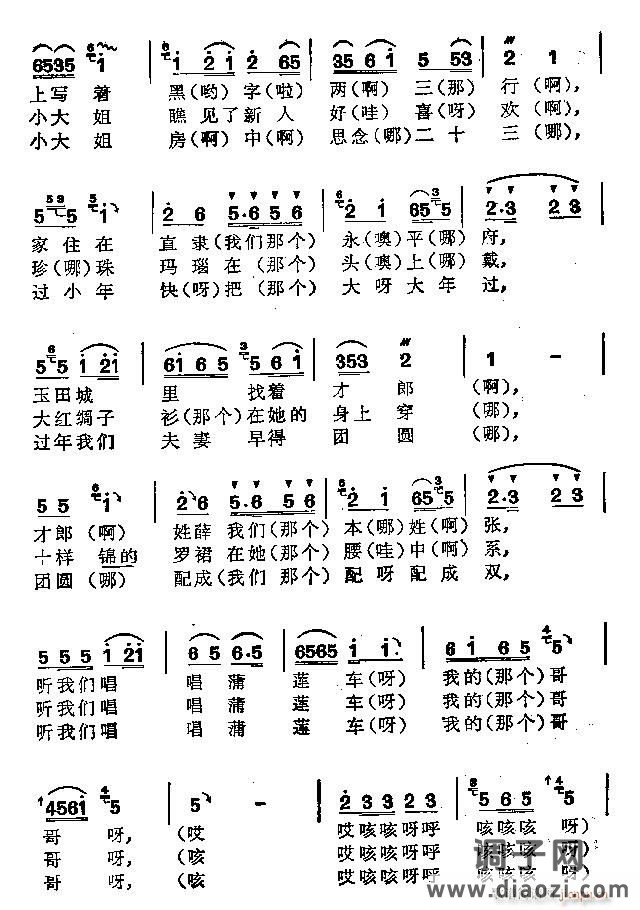 6535 6 1 1 21 2 65 35 61 5 53 2 1
上写着 黑(哟)字(啦) 两(啊)三(那) 行(啊),
小大姐 瞧见了新人 好(哇)喜(呀) 欢(啊),
小大姐 房(啊)中(啊) 思念(哪)二十 三(哪),
5 5 1 2 6 5·6 5 6 2 1 65 5 2·3 2 5
家住在 直隶(我们那个) 永(噢)平(哪) 府,
珍(哪)珠 玛瑙在(那个) 头(噢)上(哪) 戴,
过小年 快(呀)把(那个) 大呀大年 过,
5 5 1 21 61 65 5 61 353 2 1 -
玉田城 里 找着 才 郎 (啊),
大红绸子 衫(那个)在她的 身上 穿 (哪),
过年我们 夫妻 早得 团 圆 (哪),
5 5 1 2 6 5·6 5 6 2 1 65 5 2·3 2 5
才郎(啊) 姓薛我们(那个) 本(哪)姓(啊) 张,
十样锦的 罗裙在她(那个) 腰(哇)中(啊) 系,
团圆(哪) 配成(我们那个) 配呀配成 双,
5 5 5 1 21 6 5 6·5 6565 1 1 6 1 6 5 5
听我们唱 唱蒲 莲 车(呀) 我的(那个)哥
听我们唱 唱蒲 莲 车(呀) 我的(那个)哥
听我们唱 唱蒲 莲 车(呀) 我的(那个)哥
4561 5 5 - 2 323 2 3 5 6 5 5
哥 呀, (哎 哎咳咳呀呼 咳咳咳 呀)
哥 呀, (咳 哎咳咳呀呼 咳咳咳 呀)
哥 呀, (咳 哎咳咳呀呼 咳咳咳 呀)
调子网
www.diaozi.com